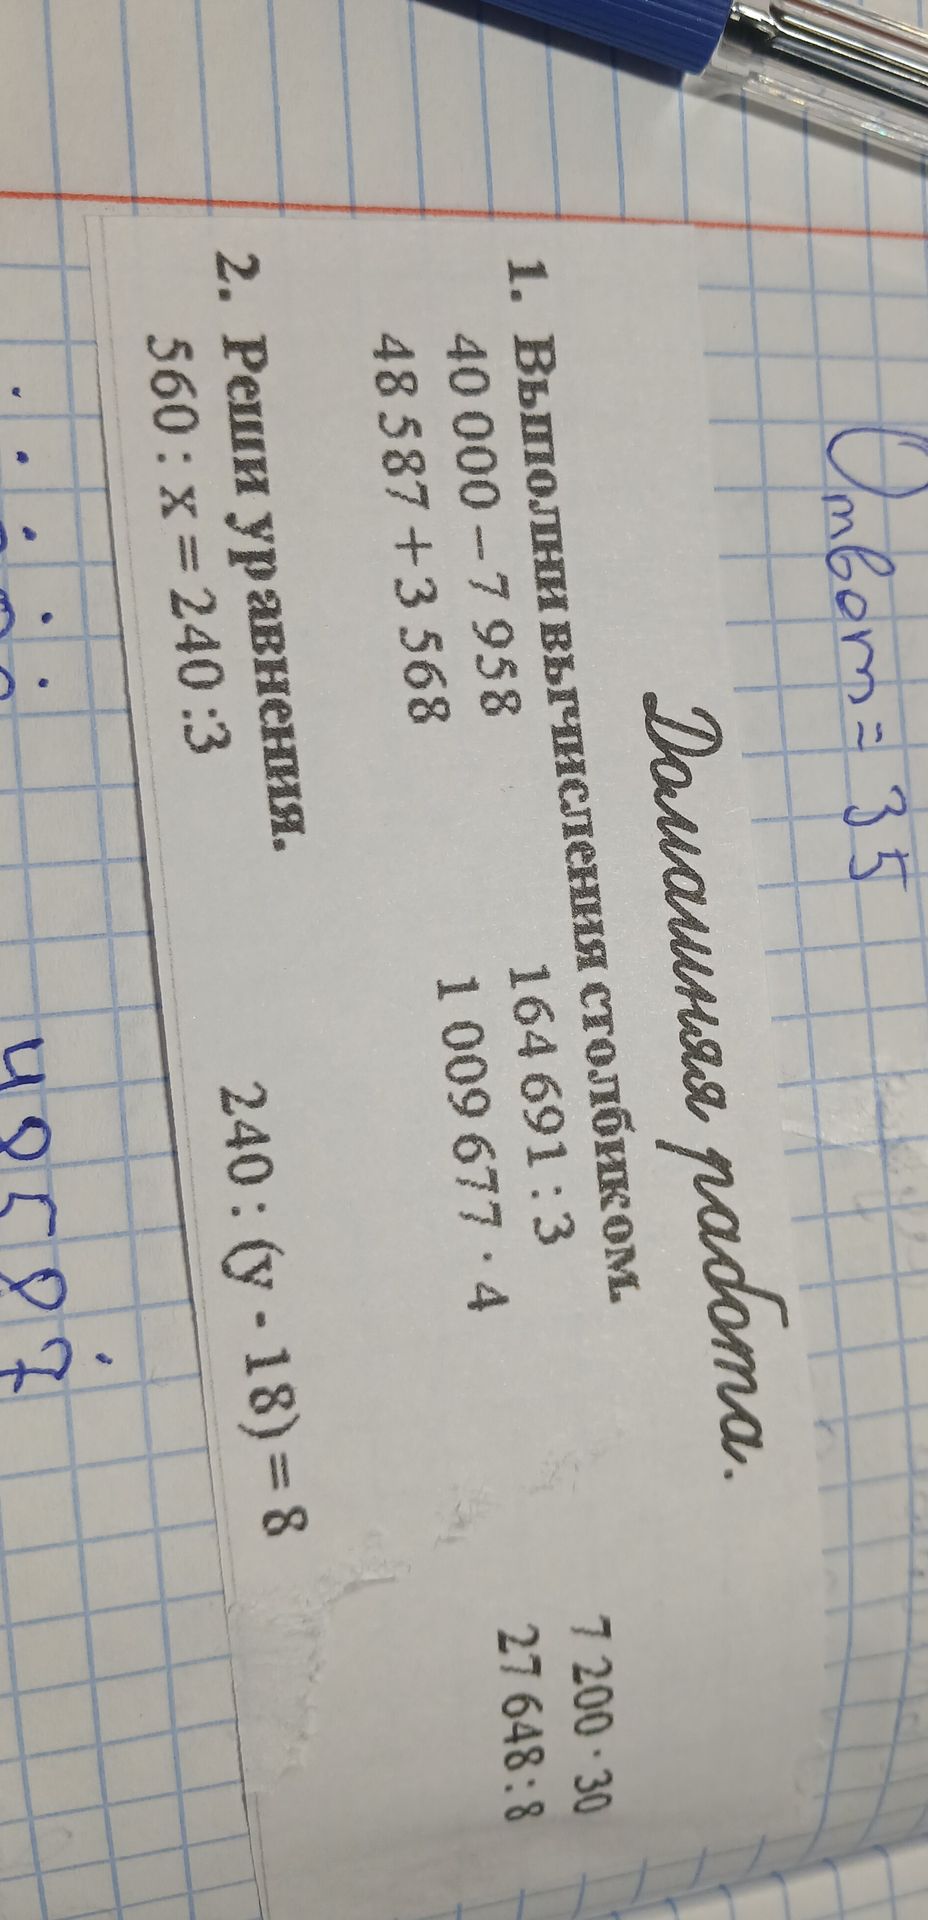 Ответ = 35
Домашняя работа.
1. Выполни вычисления столбиком.
40 000 – 7 958 164 691 : 3 7 200 · 30
48 587 + 3 568 1 009 677 · 4 27 648 : 8
2. Реши уравнения.
560 : x = 240 :3 240 : (у - 18) = 8
48587